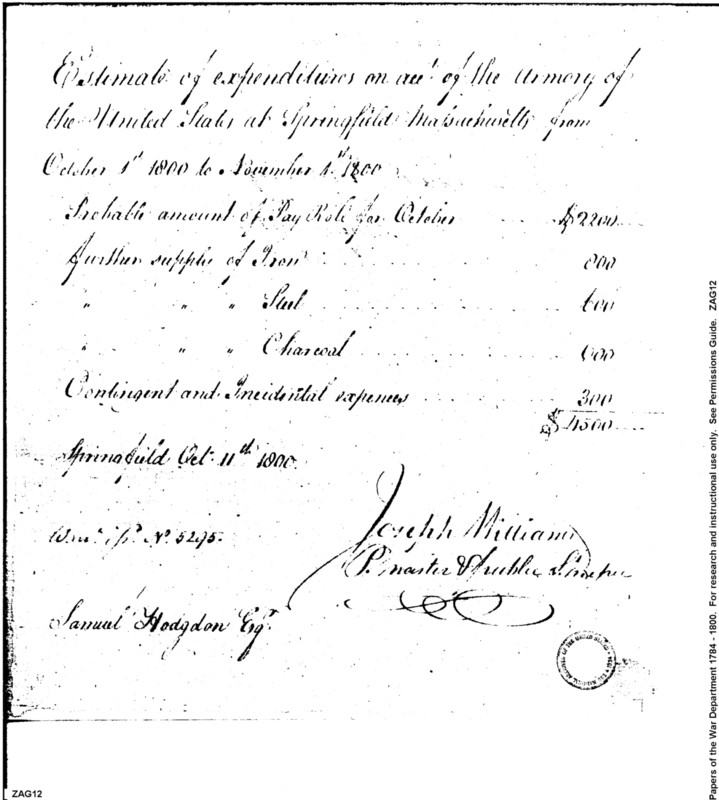 Estimate of expenditures on acct. of the Armory of
the United States at Springfield Massachusetts from
October 1st 1800 to November 1st 1800
Probable amount of Pay Roll for October $2200
further supplie of Iron 800
" " " Steel 600
" " " Charcoal 600
Contingent and Incidental expences 300
$4500
Springfield Oct. 11th 1800.
No 5295.
Joseph Williams
P. master &
Samuel Hodgdon Esqr.
Papers of the War Department 1784 - 1800. For research and instructional use only. See Permissions Guide. ZAG12
ZAG12